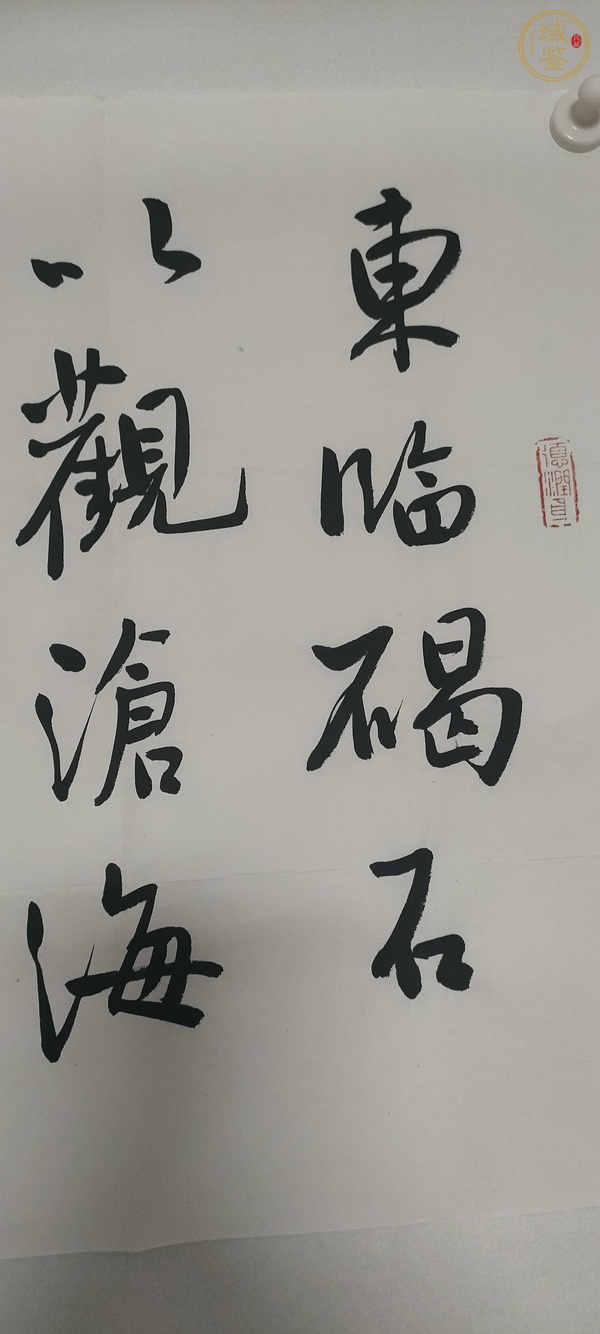 東臨碣石
以觀滄海
域鉴